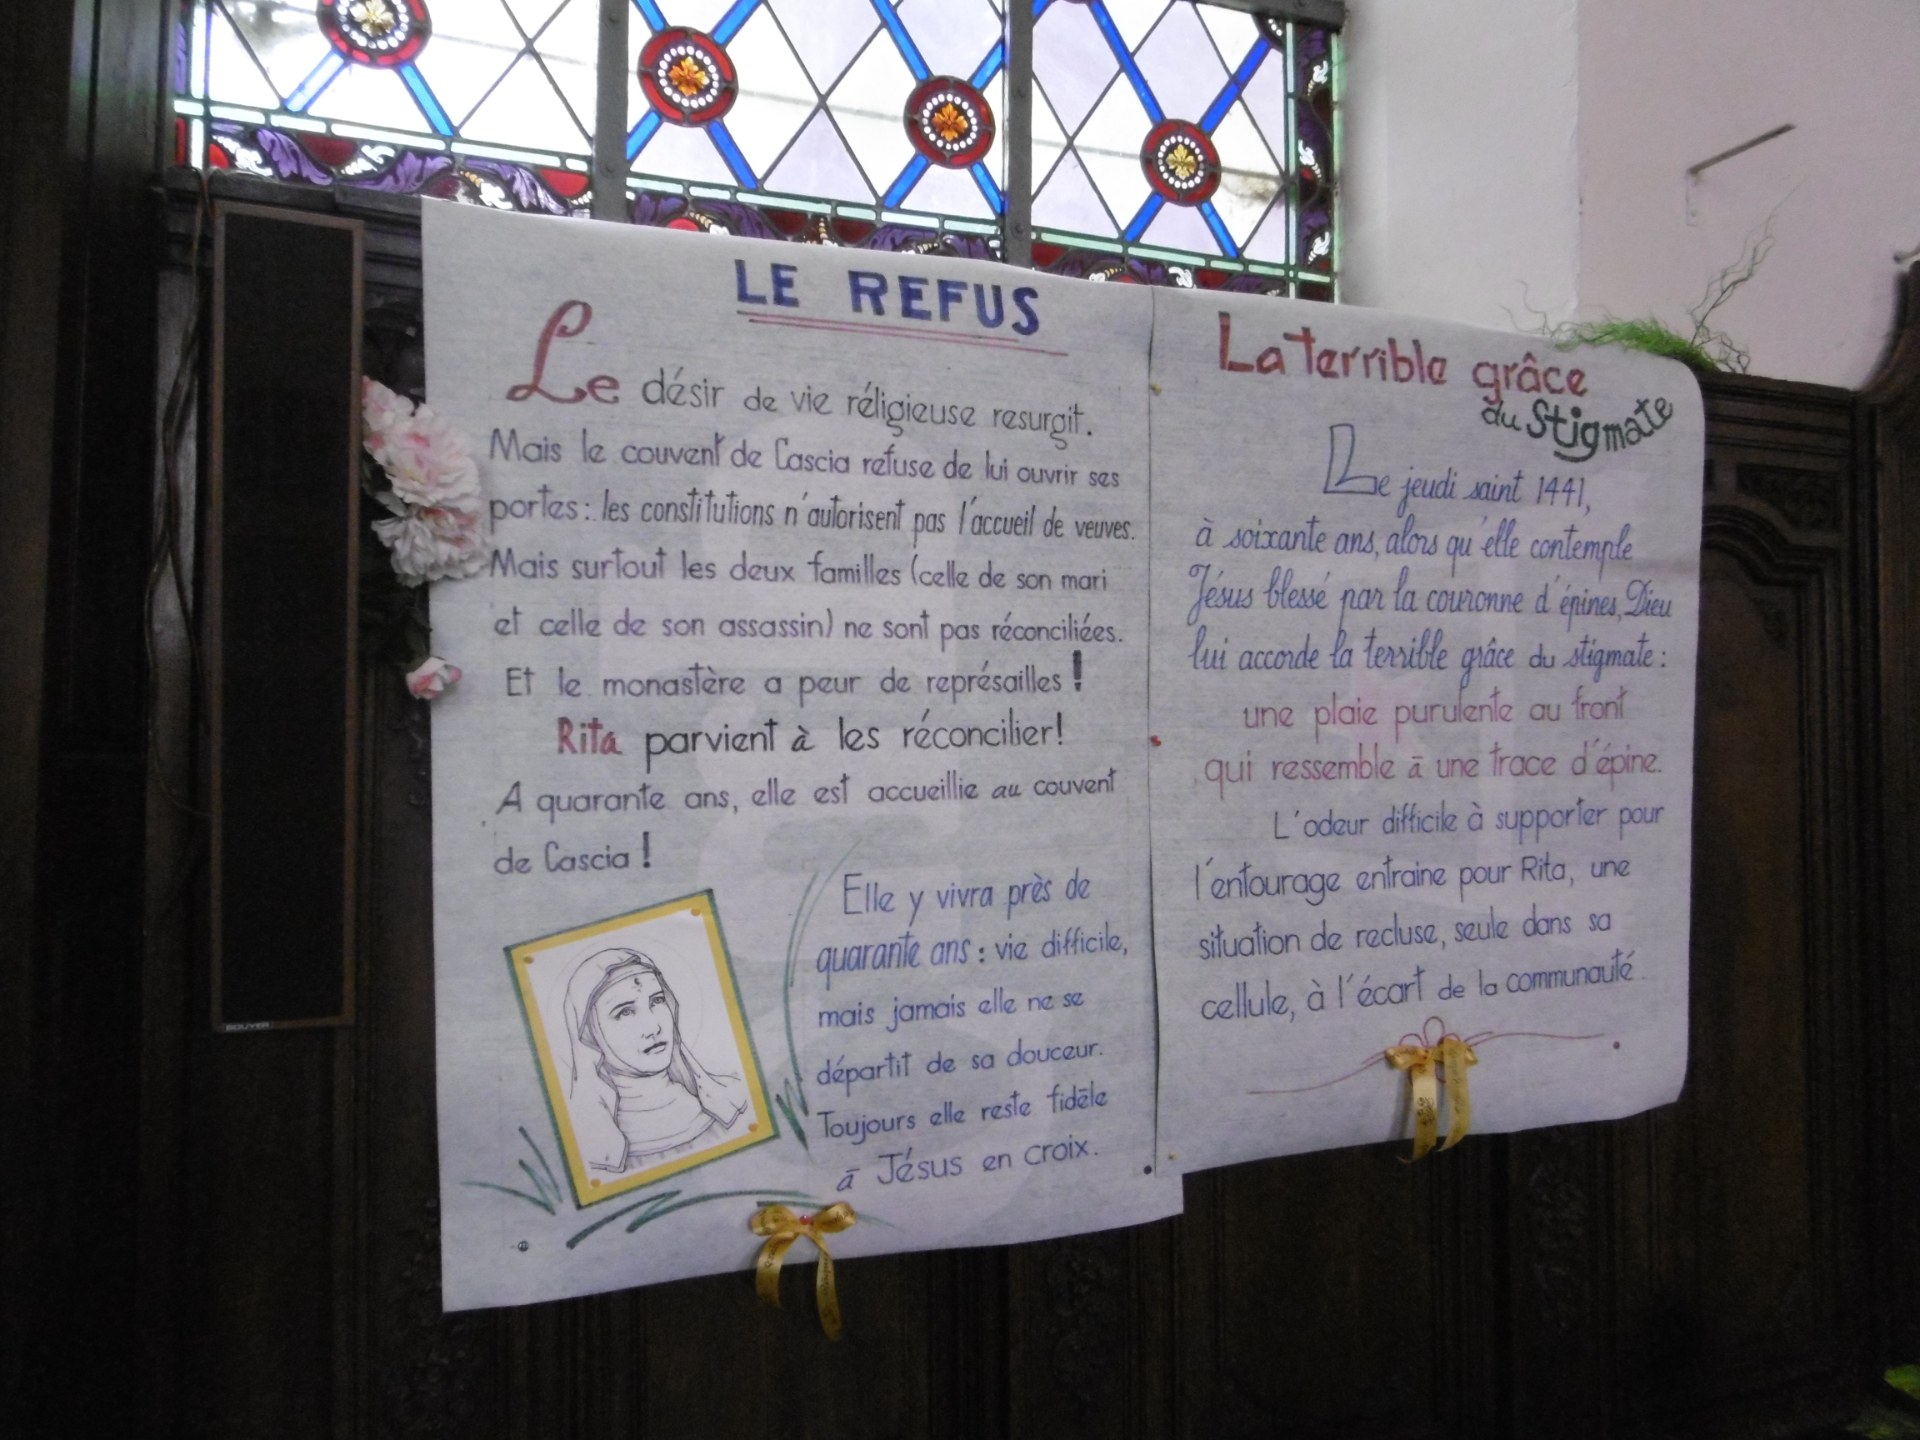 LE REFUS
Le désir de vie réligieuse resurgit.
Mais le couvent de Cascia refuse de lui ouvrir ses
portes : les constitutions n'autorisent pas l'accueil de veuves.
Mais surtout les deux familles (celle de son mari
et celle de son assassin) ne sont pas réconciliées.
Et le monastère a peur de représailles !
Rita parvient à les réconcilier!
A quarante ans, elle est accueillie au couvent
de Cascia !
Elle y vivra près de
quarante ans : vie difficile,
mais jamais elle ne se
départit de sa douceur.
Toujours elle reste fidèle
à Jésus en croix.
La terrible grâce
du Stigmate
Le jeudi saint 1441,
à soixante ans, alors qu'elle contemple
Jésus blessé par la couronne d'épines, Dieu
lui accorde la terrible grâce du stigmate :
une plaie purulente au front
qui ressemble à une trace d'épine.
L'odeur difficile à supporter pour
l'entourage entraine pour Rita, une
situation de recluse, seule dans sa
cellule, à l'écart de la communauté.
BOUYER